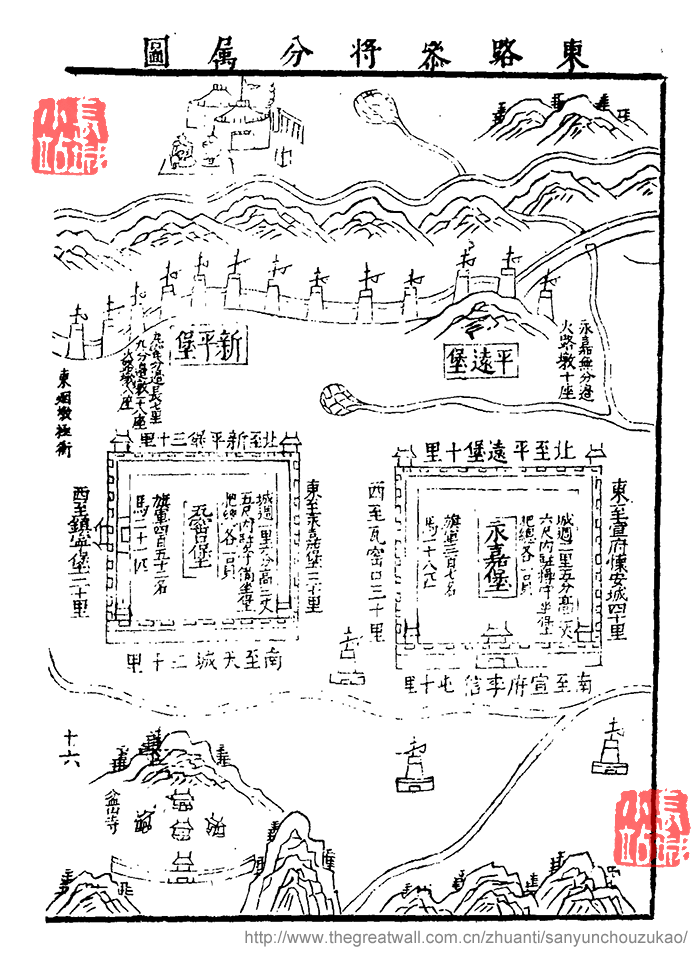 東路叅将分属圖
長城
小站
新平堡
平遠堡
永嘉無分邉
火路墩十座
北至平遠堡十里
東至宣府懷安城四十里
西至瓦窑口三十里
南至宣府李信屯十里
永嘉堡
城週二里五分高三丈
六尺内駐操守坐堡
把總各一員
旗軍三百七名
馬二十八匹
北至新平
三十里
東至永嘉堡二十里
西至鎮寧堡二十里
南至天城二十里
城週二里六分高三丈
五尺内駐守備坐堡
把總各一員
旗軍四百五十二名
馬二十一匹
十六
盆山寺
長城
小站
http://www.thegreatwall.com.cn/zhuanti/sanyunchouzukao/